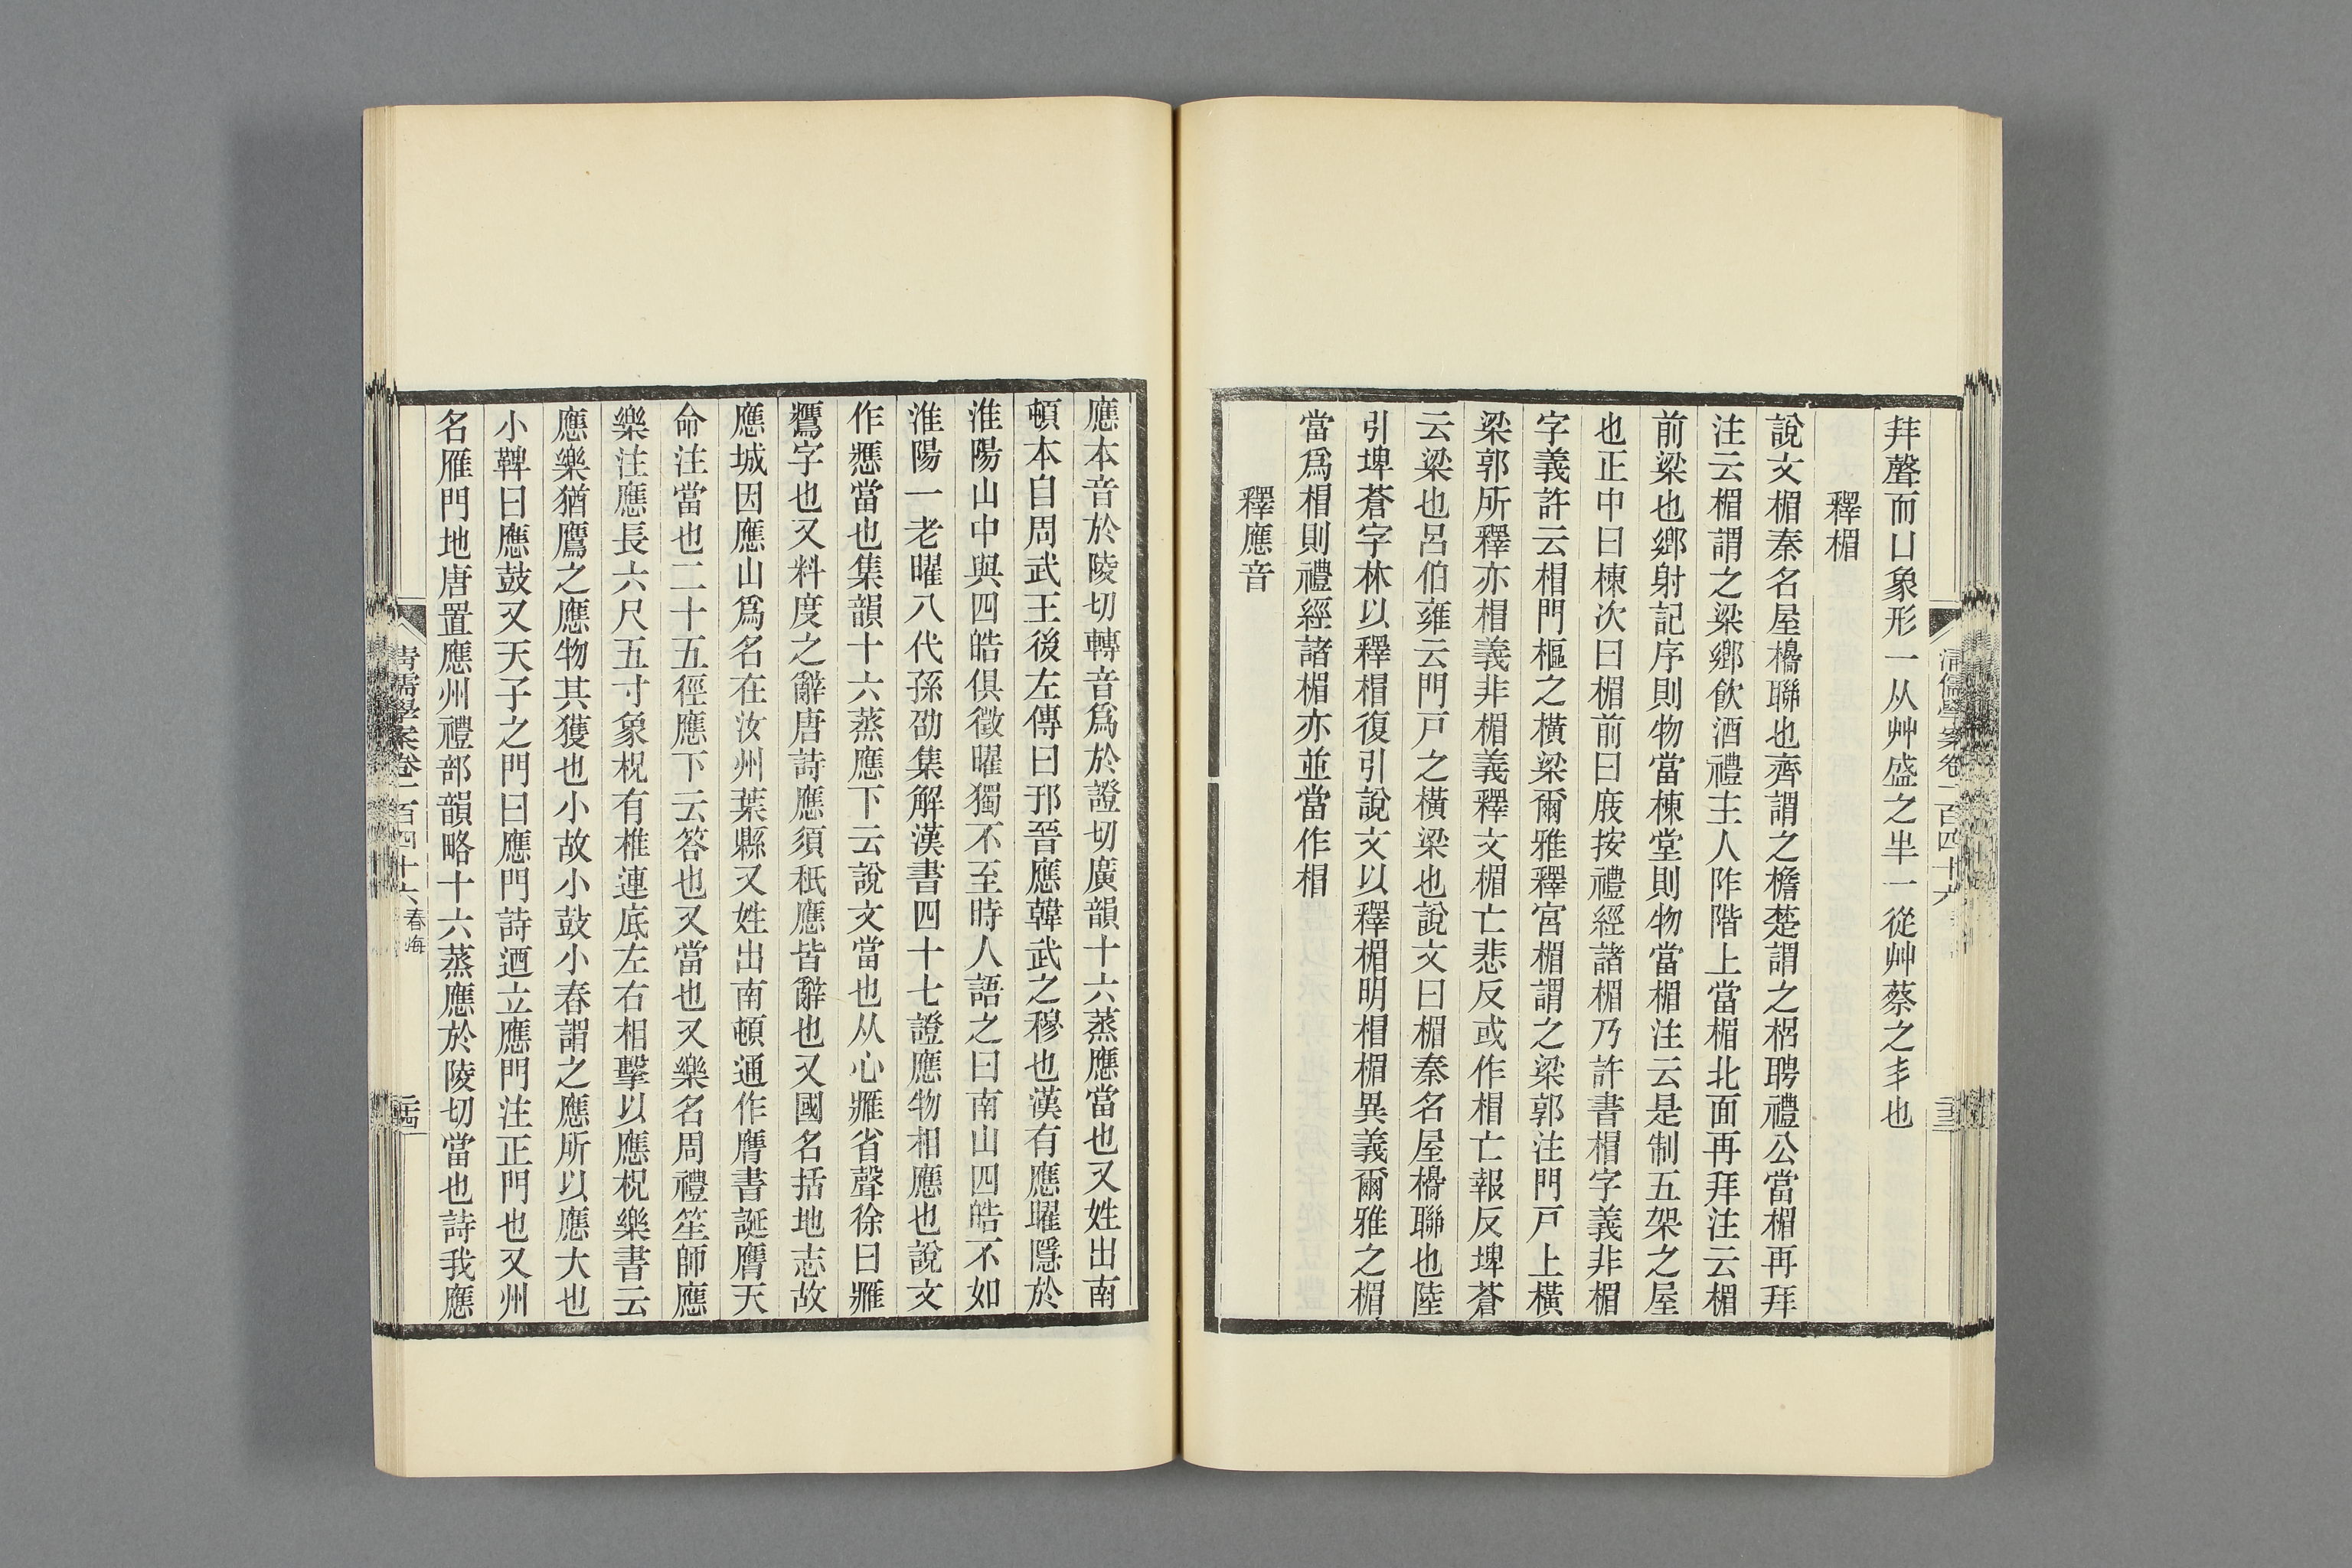 拜聲而凵象形一从艸盛之丰一從艸蔡之丯也
釋楣
說文楣秦名屋櫋聯也齊謂之檐楚謂之梠聘禮公當楣再拜
注云楣謂之梁鄉飲酒禮主人阼階上當楣北面再拜注云楣
前梁也鄉射記序則物當棟堂則物當楣注云是制五架之屋
也正中曰棟次曰楣前曰庪按禮經諸楣乃許書梎字義非楣
字義許云梎門樞之橫梁爾雅釋宮楣謂之梁郭注門戸上橫
梁郭所釋亦梎義非楣義釋文楣亡悲反或作梎亡報反埤蒼
云梁也呂伯雍云門戸之橫梁也說文曰楣秦名屋櫋聯也陸
引埤蒼字林以釋梎復引說文以釋楣明梎楣異義爾雅之楣
當爲梎則禮經諸楣亦並當作梎
釋應音
清儒學案卷一百四十六
應本音於陵切轉音爲於證切廣韻十六蒸應當也又姓出南
頓本自周武王後左傳曰邘晉應韓武之穆也漢有應曜隱於
淮陽山中與四皓俱徵曜獨不至時人語之曰南山四皓不如
淮陽一老曜八代孫劭集解漢書四十七證應物相應也說文
作應當也集韻十六蒸應下云說文當也从心𤸰省聲徐曰𤸰
鷹字也又料度之辭唐詩應須秖應皆辭也又國名括地志故
應城因應山爲名在汝州葉縣又姓出南頓通作膺書誕膺天
命注當也二十五徑應下云答也又當也又樂名周禮笙師應
樂注應長六尺五寸象柷有椎連底左右相擊以應柷樂書云
應樂猶鷹之應物其獲也小故小鼓小舂謂之應所以應大也
小鞞曰應鼓又天子之門曰應門詩迺立應門注正門也又州
名雁門地唐置應州禮部韻略十六蒸應於陵切當也詩我應
清儒學案卷一百四十六 春海